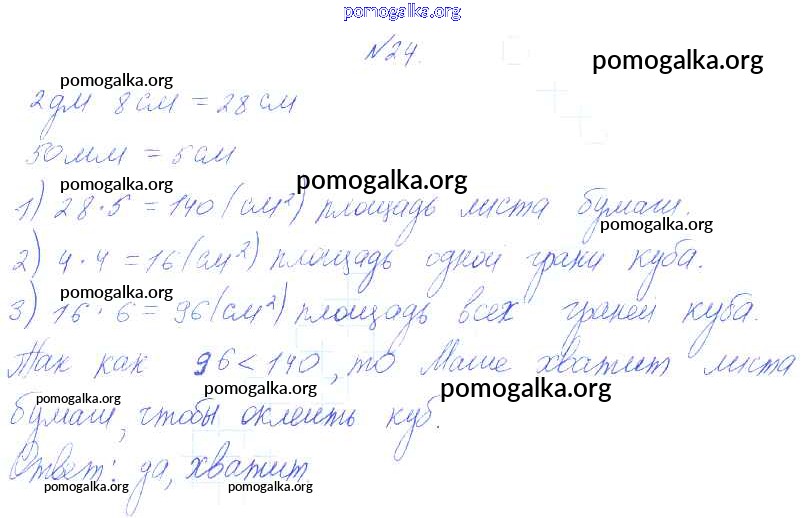 pomogalka.org
№24.
pomogalka.org
pomogalka.org
2дм 8см = 28см
50мм = 5см
pomogalka.org
pomogalka.org
1) 28·5 = 140 (см²) площадь листа бумаги.
pomogalka.org
2) 4·4 = 16 (см²) площадь одной грани куба.
pomogalka.org
3) 16·6 = 96 (см²) площадь всех граней куба.
Так как 96 < 140, то Маше хватит листа
pomogalka.org
pomogalka.org
pomogalka.org
бумаги, чтобы оклеить куб.
Ответ: да, хватит
pomogalka.org
pomogalka.org